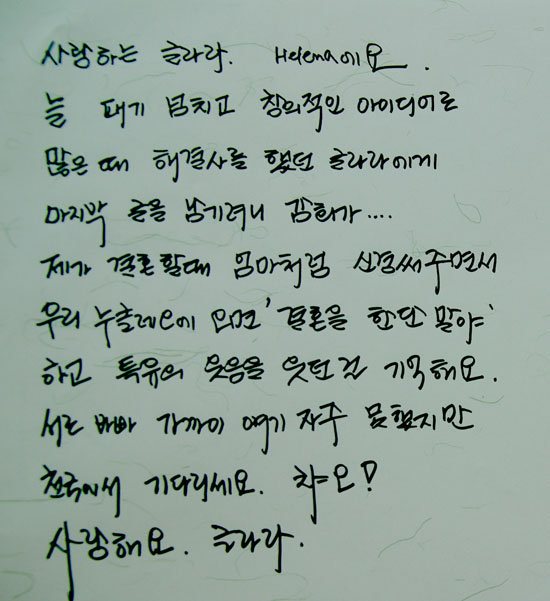 사랑하는 글라라. Helena에요.
늘 패기 넘치고 창의적인 아이디어로
많은 때 해결사를 했던 글라라에게
마지막 글을 남기려니 감회가....
제가 결혼할때 엄마처럼 신경써주면서
우리 누흘레에 오면 '결혼을 한단 말야'
하고 특유의 웃음을 웃던걸 기억해요.
서로 바빠 가까이 얘기 자주 못했지만
천국에서 기다리세요. 챠오!
사랑해요. 글라라.